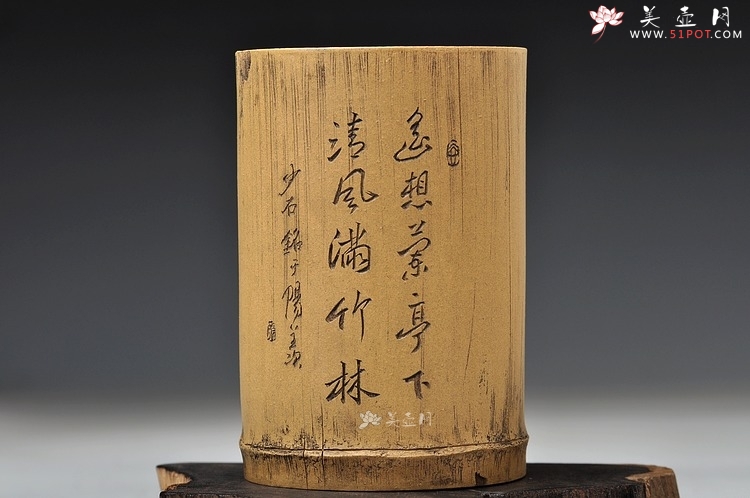 美壶网
WWW.51POT.COM
遥想兰亭下
清风满竹林
少石铭于阳羡
美壶网